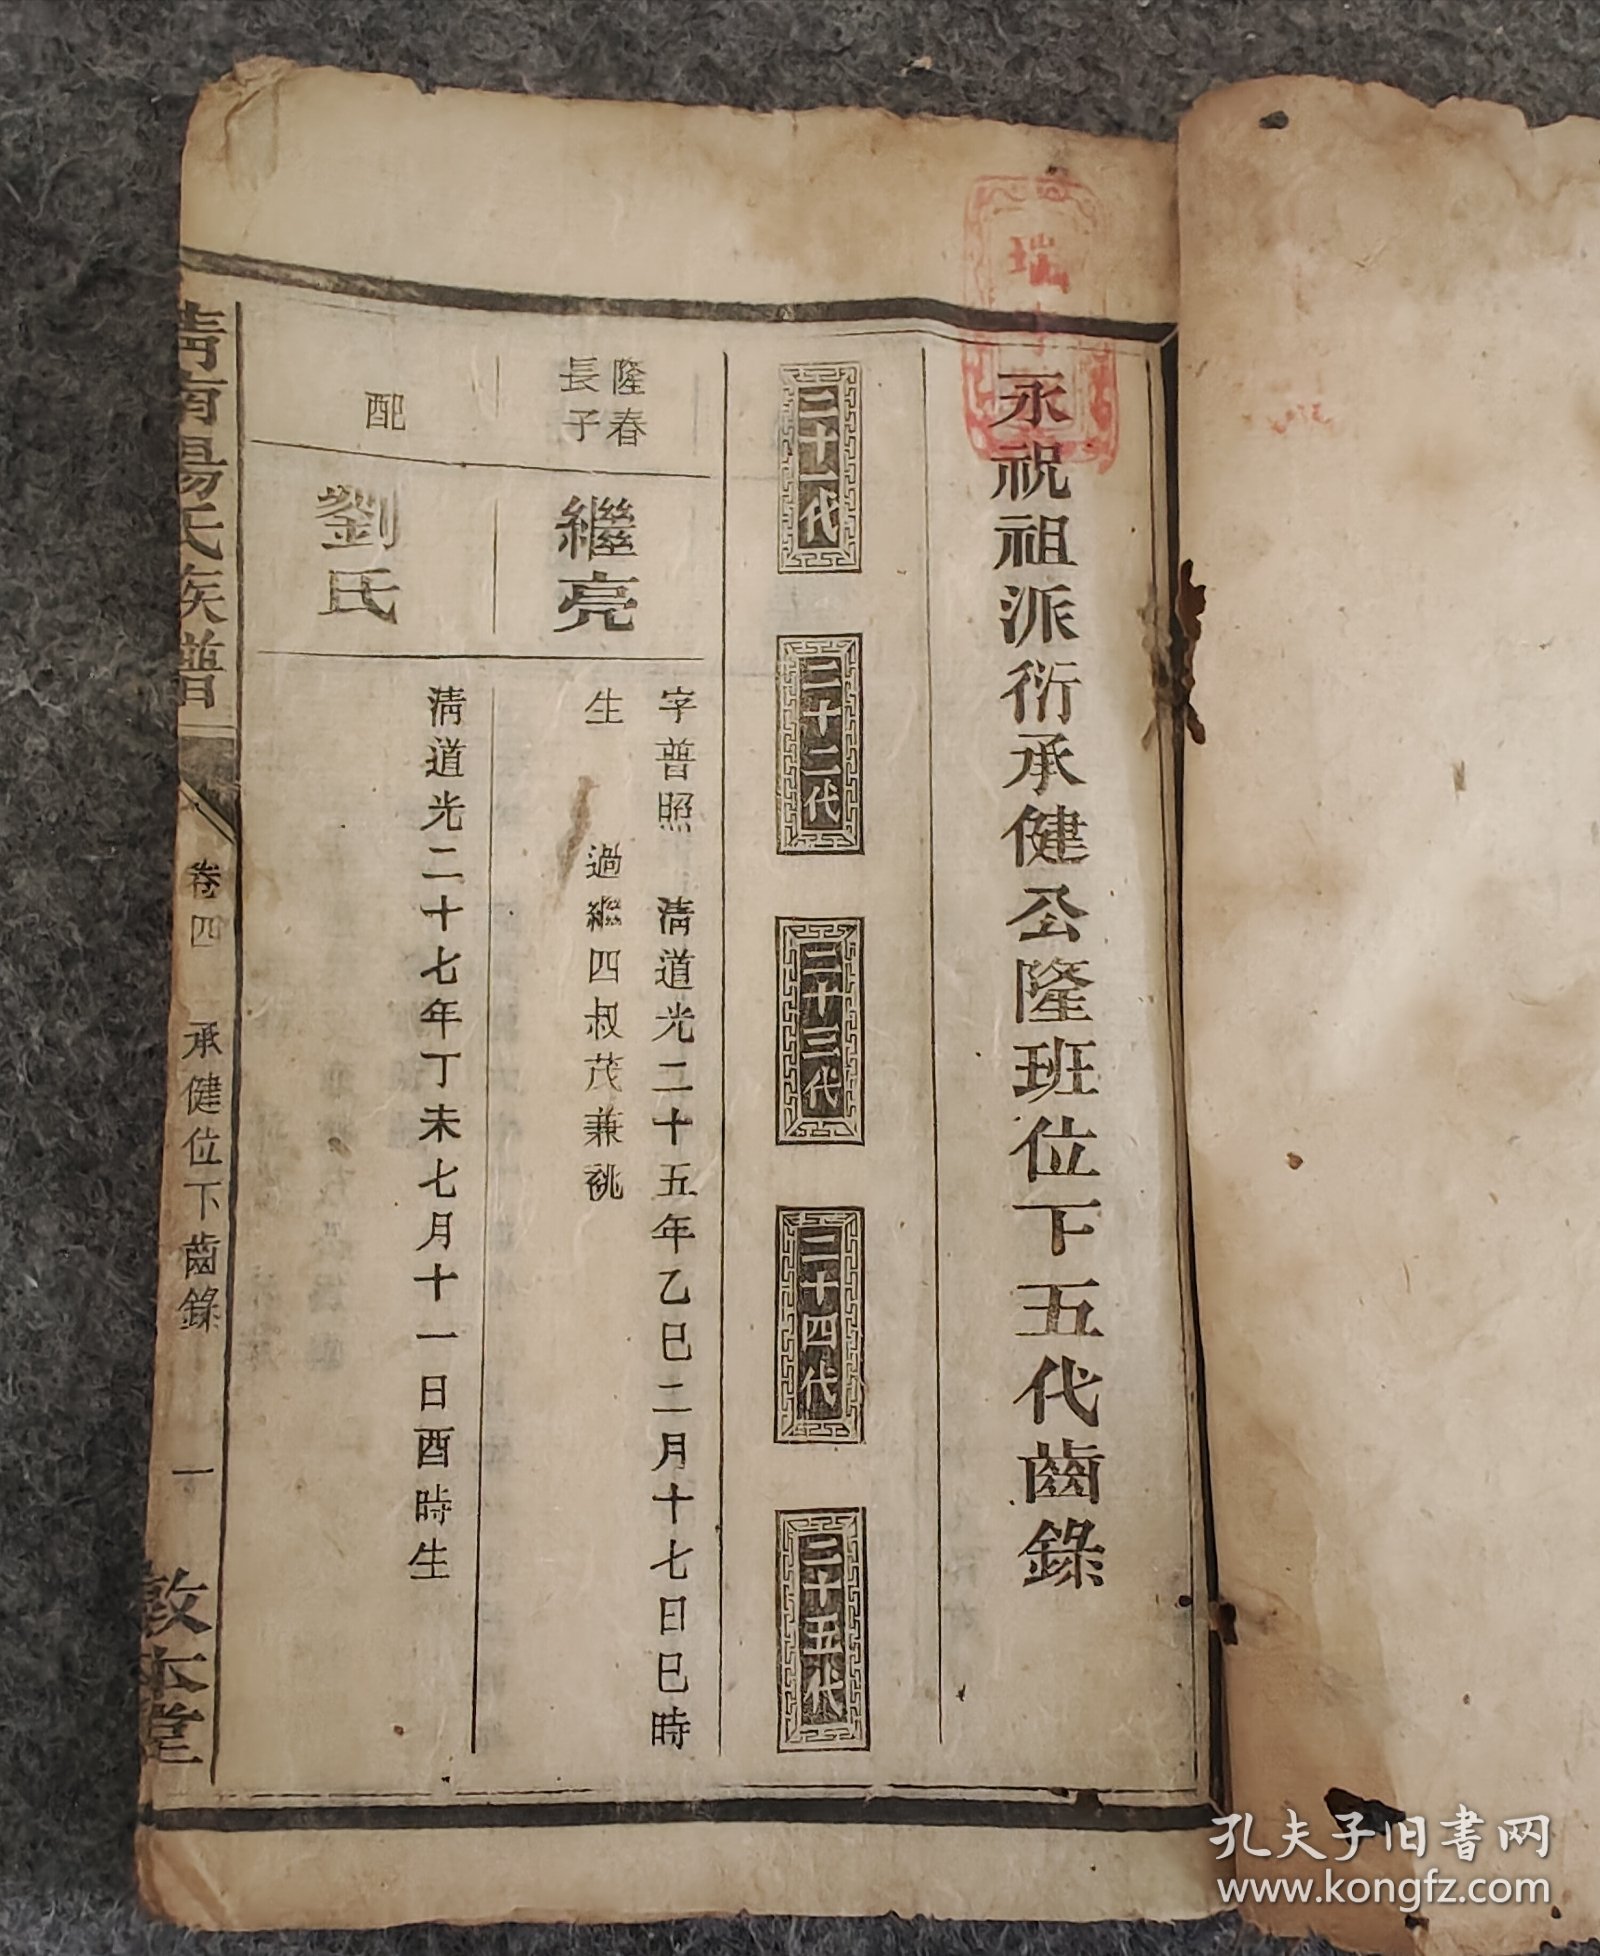 永祝祖派衍承健公隆班位下五代齒錄
二十一代
二十二代
二十三代
二十四代
二十五代
隆春
長子
繼亮
字普照 清道光二十五年乙巳二月十七日巳時
生 過繼四叔茂兼祧
配
劉氏
清道光二十七年丁未七月十一日酉時生
南陽氏族譜
卷四 承健位下齒錄 一
敦本堂
瑞
孔夫子旧书网
www.kongfz.com